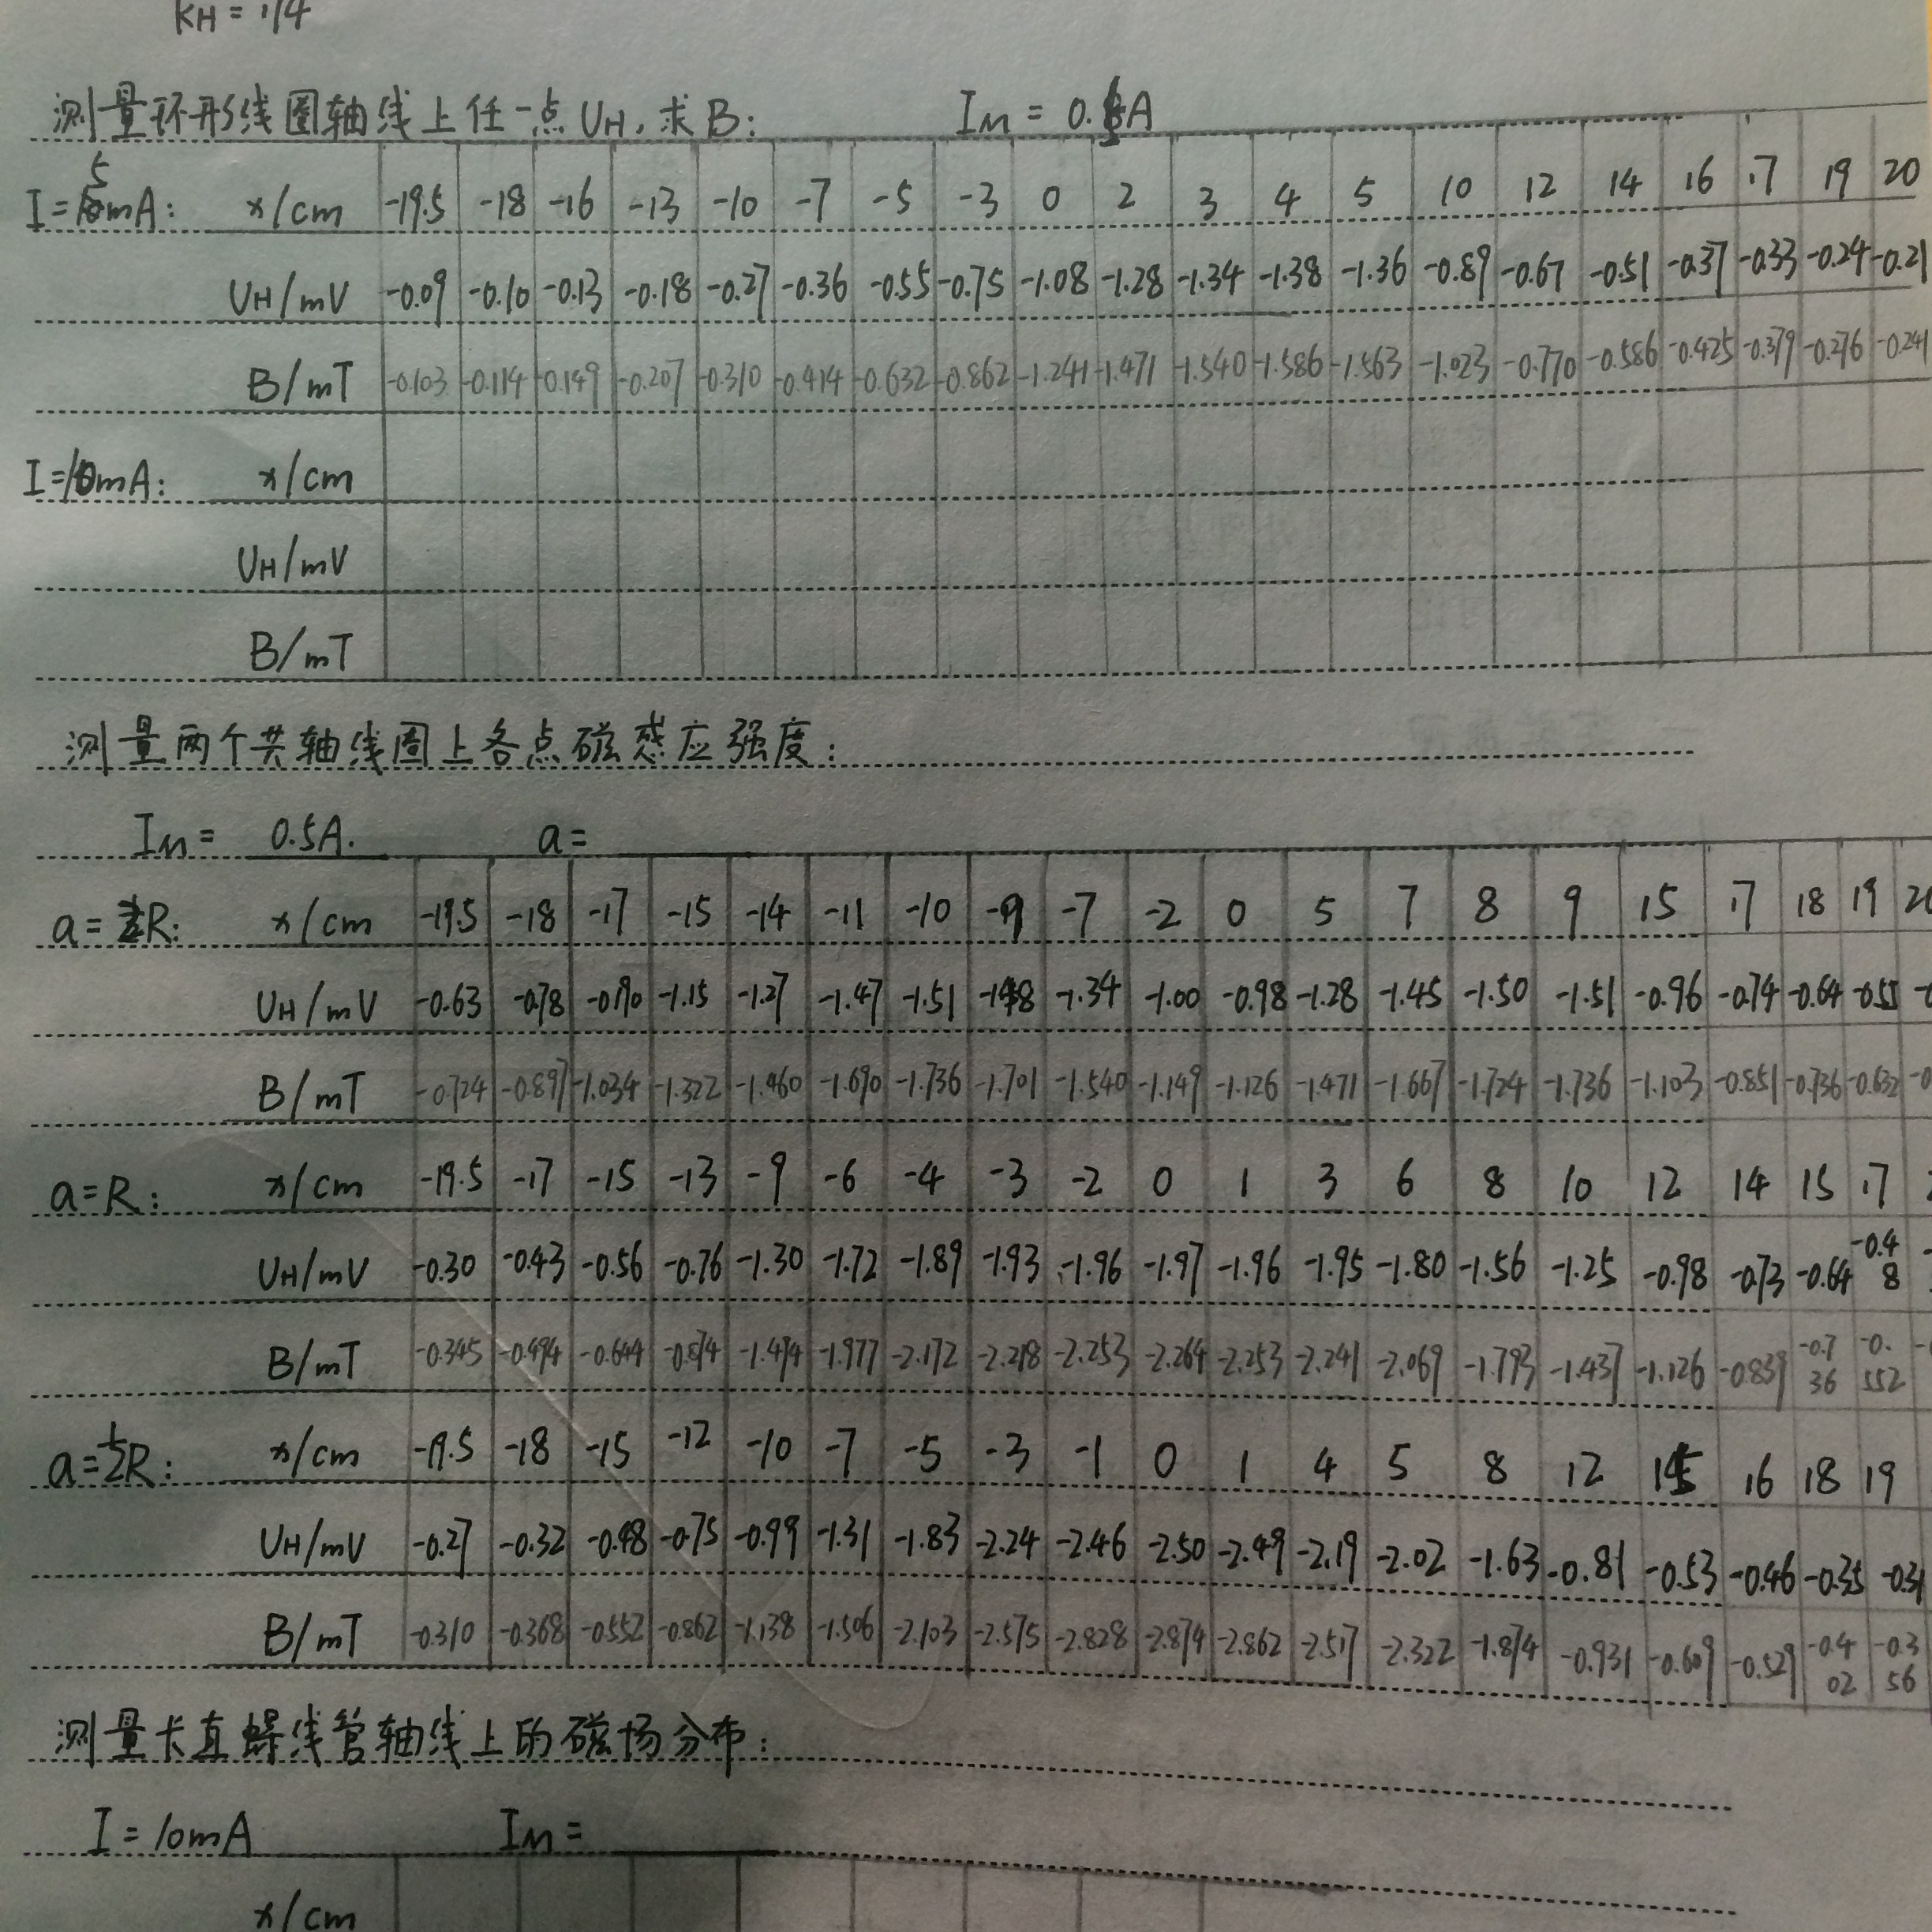 KH = 174
测量环形线圈轴线上任一点UH,求B: IM = 0.5A
I=5mA: x/cm -19.5 -18 -16 -13 -10 -7 -5 -3 0 2 3 4 5 10 12 14 16 17 19 20
UH/mV -0.09 -0.10 -0.13 -0.18 -0.27 -0.36 -0.55 -0.75 -1.08 -1.28 -1.34 -1.38 -1.36 -0.89 -0.67 -0.51 -0.37 -0.33 -0.24 -0.21
B/mT -0.103 -0.114 -0.149 -0.207 -0.310 -0.414 -0.632 -0.862 -1.241 -1.471 -1.540 -1.586 -1.563 -1.023 -0.770 -0.586 -0.425 -0.379 -0.276 -0.241
I=10mA: x/cm
UH/mV
B/mT
测量两个共轴线圈上各点磁感应强度:
IM = 0.5A. a=
a=2R: x/cm -19.5 -18 -17 -15 -14 -11 -10 -9 -7 -2 0 5 7 8 9 15 17 18 19 20
UH/mV -0.63 -0.78 -0.90 -1.15 -1.27 -1.47 -1.51 -1.48 -1.34 -1.00 -0.98 -1.28 -1.45 -1.50 -1.51 -0.96 -0.74 -0.64 -0.55
B/mT -0.724 -0.897 -1.034 -1.322 -1.460 -1.690 -1.736 -1.701 -1.540 -1.149 -1.126 -1.471 -1.667 -1.724 -1.736 -1.103 -0.851 -0.736 -0.632
a=R: x/cm -19.5 -17 -15 -13 -9 -6 -4 -3 -2 0 1 3 6 8 10 12 14 15 17
UH/mV -0.30 -0.43 -0.56 -0.76 -1.30 -1.72 -1.89 -1.93 -1.96 -1.97 -1.96 -1.95 -1.80 -1.56 -1.25 -0.98 -0.73 -0.64 -0.48
B/mT -0.345 -0.494 -0.644 -0.874 -1.494 -1.977 -2.172 -2.218 -2.253 -2.264 -2.253 -2.241 -2.069 -1.793 -1.437 -1.126 -0.839 -0.736 -0.552
a=½R: x/cm -19.5 -18 -15 -12 -10 -7 -5 -3 -1 0 1 4 5 8 12 15 16 18 19
UH/mV -0.27 -0.32 -0.48 -0.75 -0.99 -1.31 -1.83 -2.24 -2.46 -2.50 -2.49 -2.19 -2.02 -1.63 -0.81 -0.53 -0.46 -0.35 -0.31
B/mT -0.310 -0.368 -0.552 -0.862 -1.138 -1.506 -2.103 -2.575 -2.828 -2.874 -2.862 -2.517 -2.322 -1.874 -0.931 -0.609 -0.529 -0.402 -0.356
测量长直螺线管轴线上的磁场分布:
I = 10mA IM =
x/cm